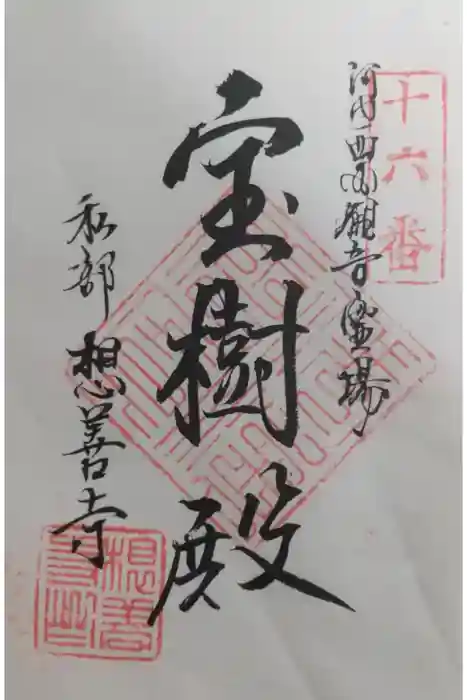 十六番
河内西国観音霊場
宝樹殿
私部 想善寺